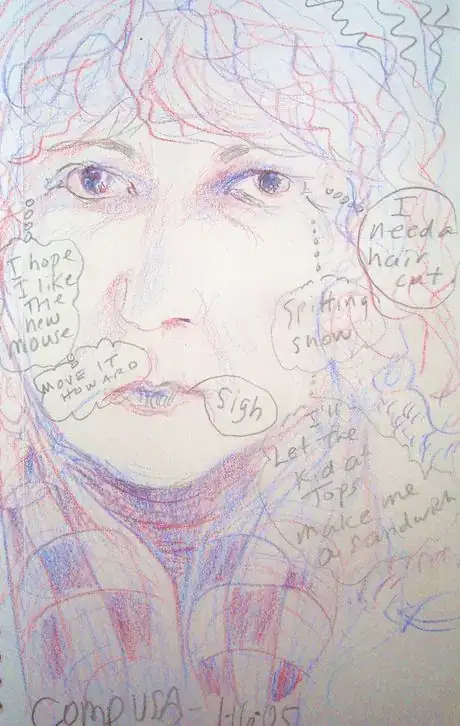 I
need a
hair
cut.
I hope
I like
the
new
mouse
Spitting
snow
MOVE IT
HOWARD
Sigh
I'll
Let the
kid at
Tops
make me
a sandwich
COMPUSA - 1-16-05